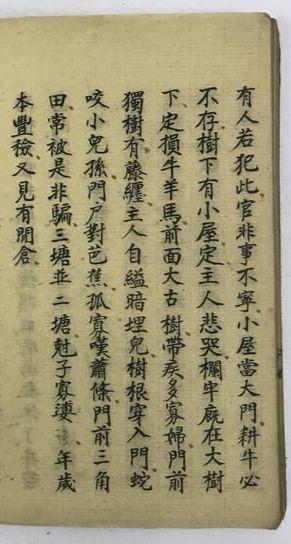 有人若犯此官非事不寧小屋當大門耕牛必
不存樹下有小屋定主人悲哭欄牢厩在大樹
下定損牛羊馬前面大古樹帶疾多寡婦門前
獨樹有藤纏主人自縊暗埋兒樹根穿入門蛇
咬小兒孫門户對芭蕉孤寡嘆蕭條門前三角
田常被是非騙三塘並二塘尅子寡 年歲
本豐檢又見有開倉